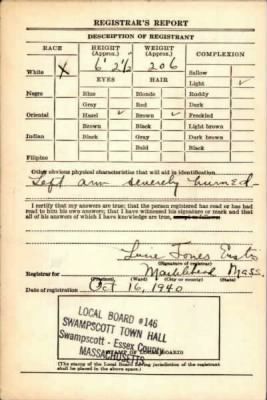 REGISTRAR'S REPORT
DESCRIPTION OF REGISTRANT
RACE HEIGHT (Approx.) WEIGHT (Approx.) COMPLEXION
White X 6' 2½ 206 Sallow
EYES HAIR Light ✓
Negro Blue Blonde Ruddy
Gray Red Dark
Oriental Hazel ✓ Brown ✓ Freckled
Brown Black Light brown
Indian Black Gray Dark brown
Bald Black
Filipino
Other obvious physical characteristics that will aid in identification
Left arm severely burned
I certify that my answers are true; that the person registered has read or has had
read to him his own answers; that I have witnessed his signature or mark and that
all of his answers of which I have knowledge are true, except as follows:
Jones
(Signature of registrar)
Registrar for Marblehead Mass.
(Precinct) (Ward) (City or county) (State)
Date of registration Oct 16, 1940
LOCAL BOARD #146
SWAMPSCOTT TOWN HALL
Swampscott - Essex County
MASSACHUSETTS
STAMP OF LOCAL BOARD)
(The stamp of the Local Board having jurisdiction of the registrant
shall be placed in the above space.)